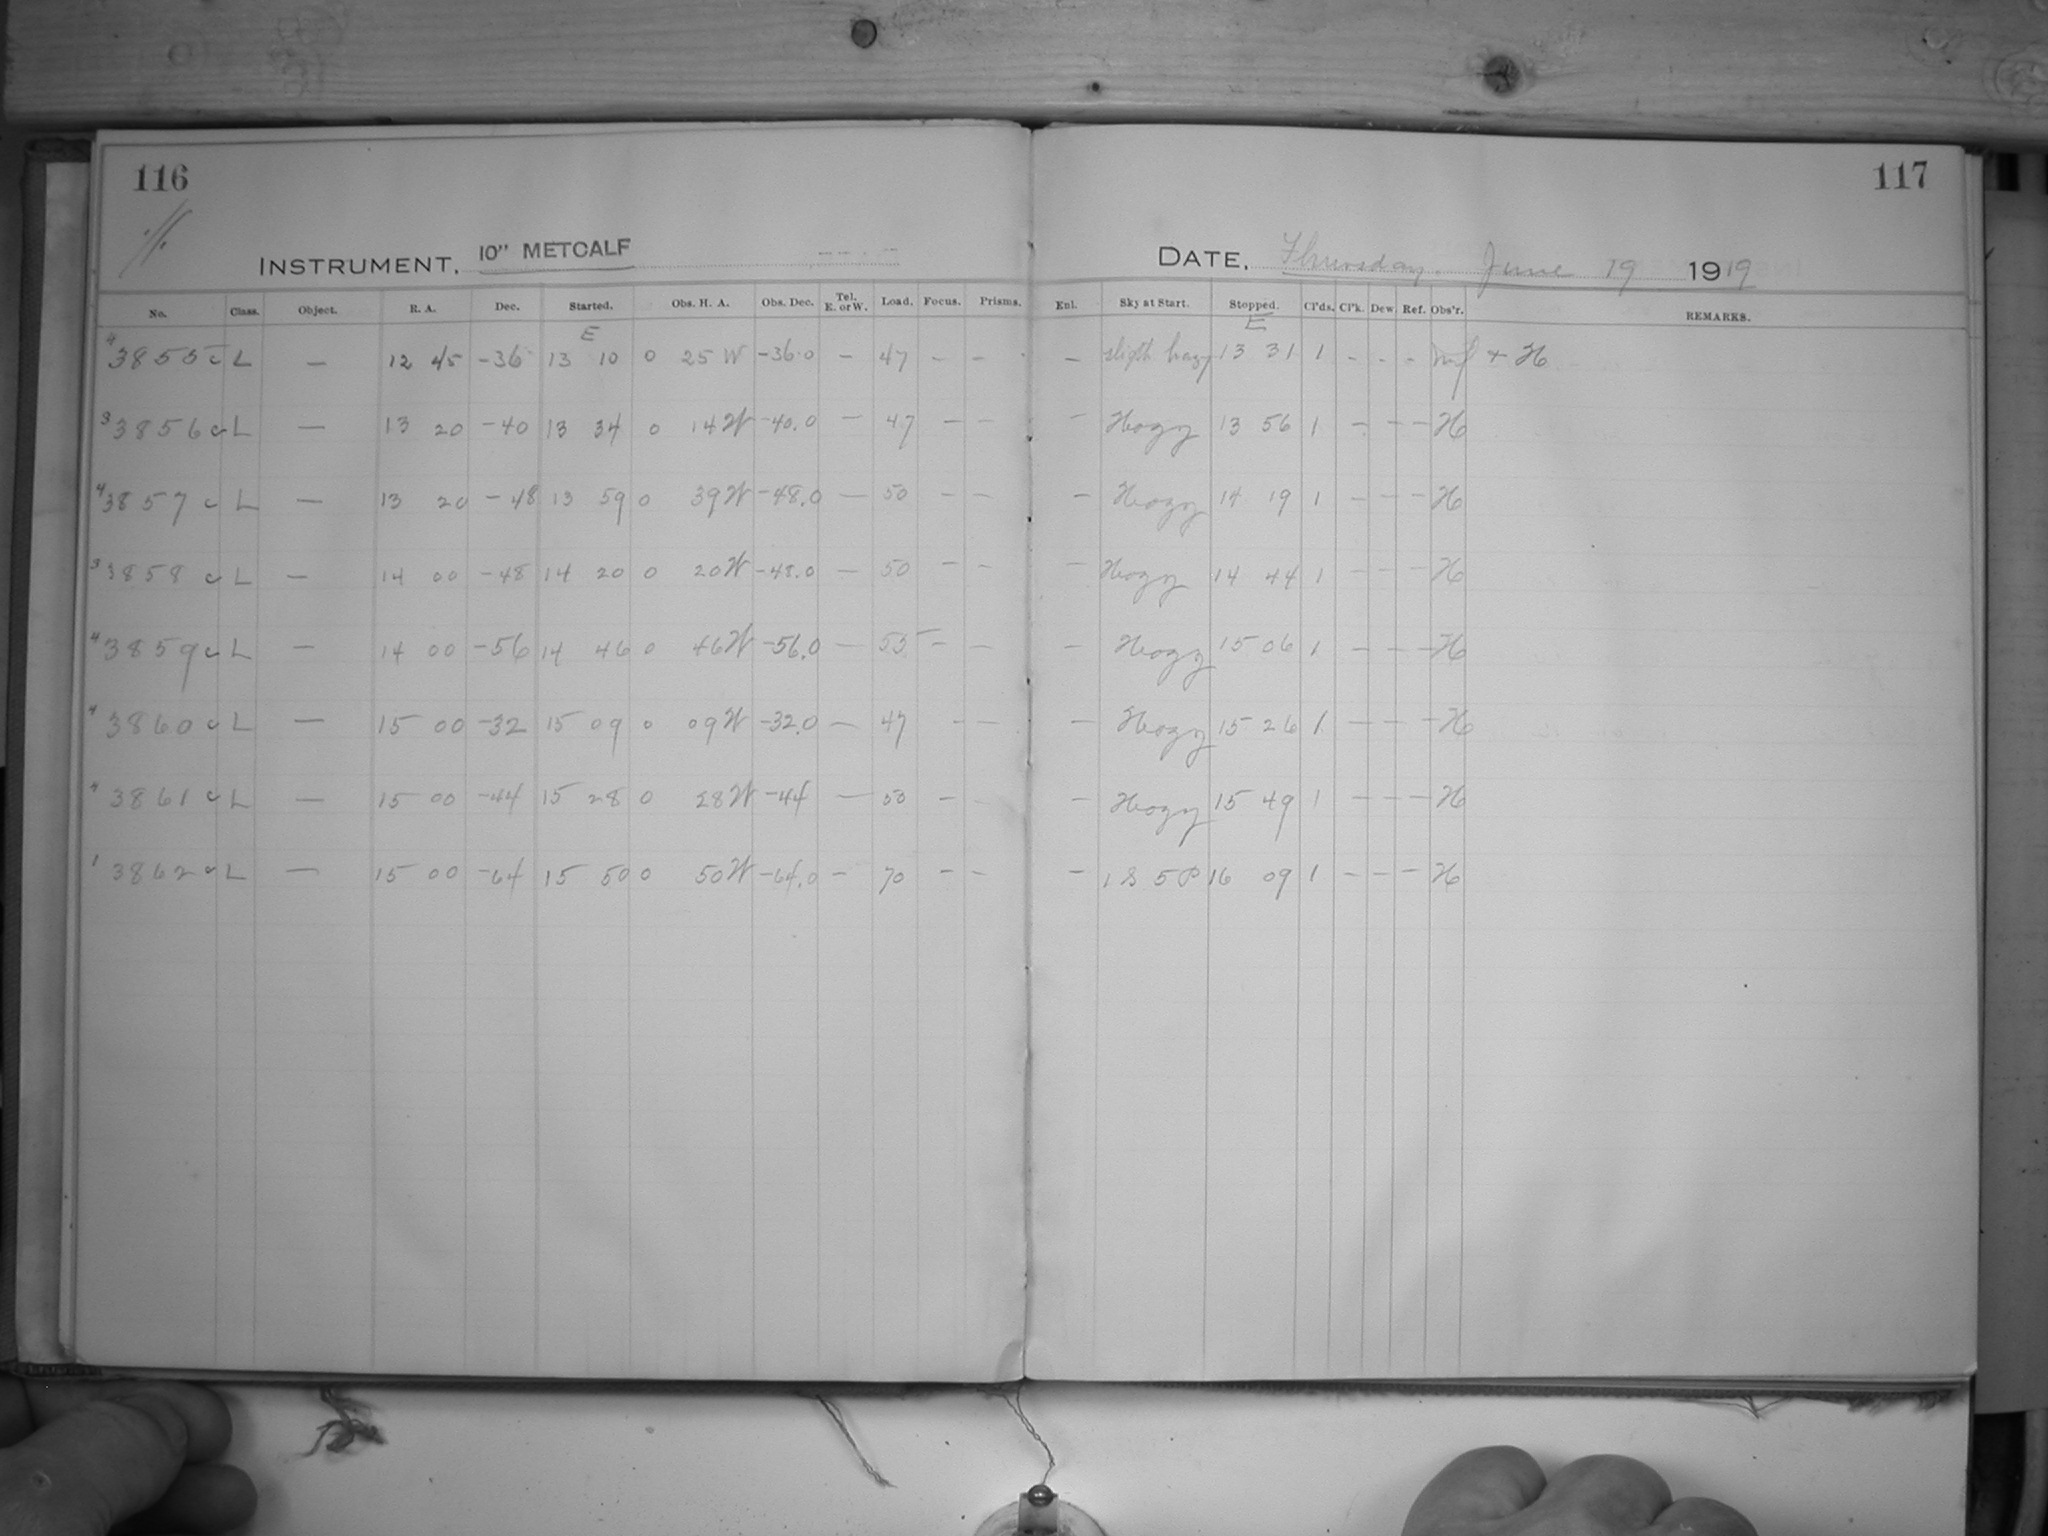 116
117
INSTRUMENT, 10" METCALF
DATE, Thursday. June 19 1919
No. Class. Object. R. A. Dec. Started. Obs. H. A. Obs. Dec. Tel. E. or W. Load. Focus. Prisms. Enl. Sky at Start. Stopped. Cl'ds. Cl'k. Dew Ref. Obs'r. REMARKS.
E E
4 3855 c L — 12 45 -36 13 10 0 25 W -36.0 — 47 — — — sligth hazy 13 31 1 - - - + H
3 3856 c L — 13 20 -40 13 34 0 14 W -40.0 — 47 — — — Hazy 13 56 1 - - - H
4 3857 c L — 13 20 -48 13 59 0 39 W -48.0 — 50 — — — Hazy 14 19 1 - - - H
3 3858 c L — 14 00 -48 14 20 0 20 W -48.0 — 50 — — — Hazy 14 44 1 - - - H
4 3859 c L — 14 00 -56 14 46 0 46 W -56.0 — 55 — — — Hazy 15 06 1 - - - H
4 3860 c L — 15 00 -32 15 09 0 09 W -32.0 — 47 — — — Hazy 15 26 1 - - - H
4 3861 c L — 15 00 -44 15 28 0 28 W -44 — 50 — — — Hazy 15 49 1 - - - H
1 3862 c L — 15 00 -64 15 50 0 50 W -64.0 — 70 — — — 1 S 5 P 16 09 1 - - - H